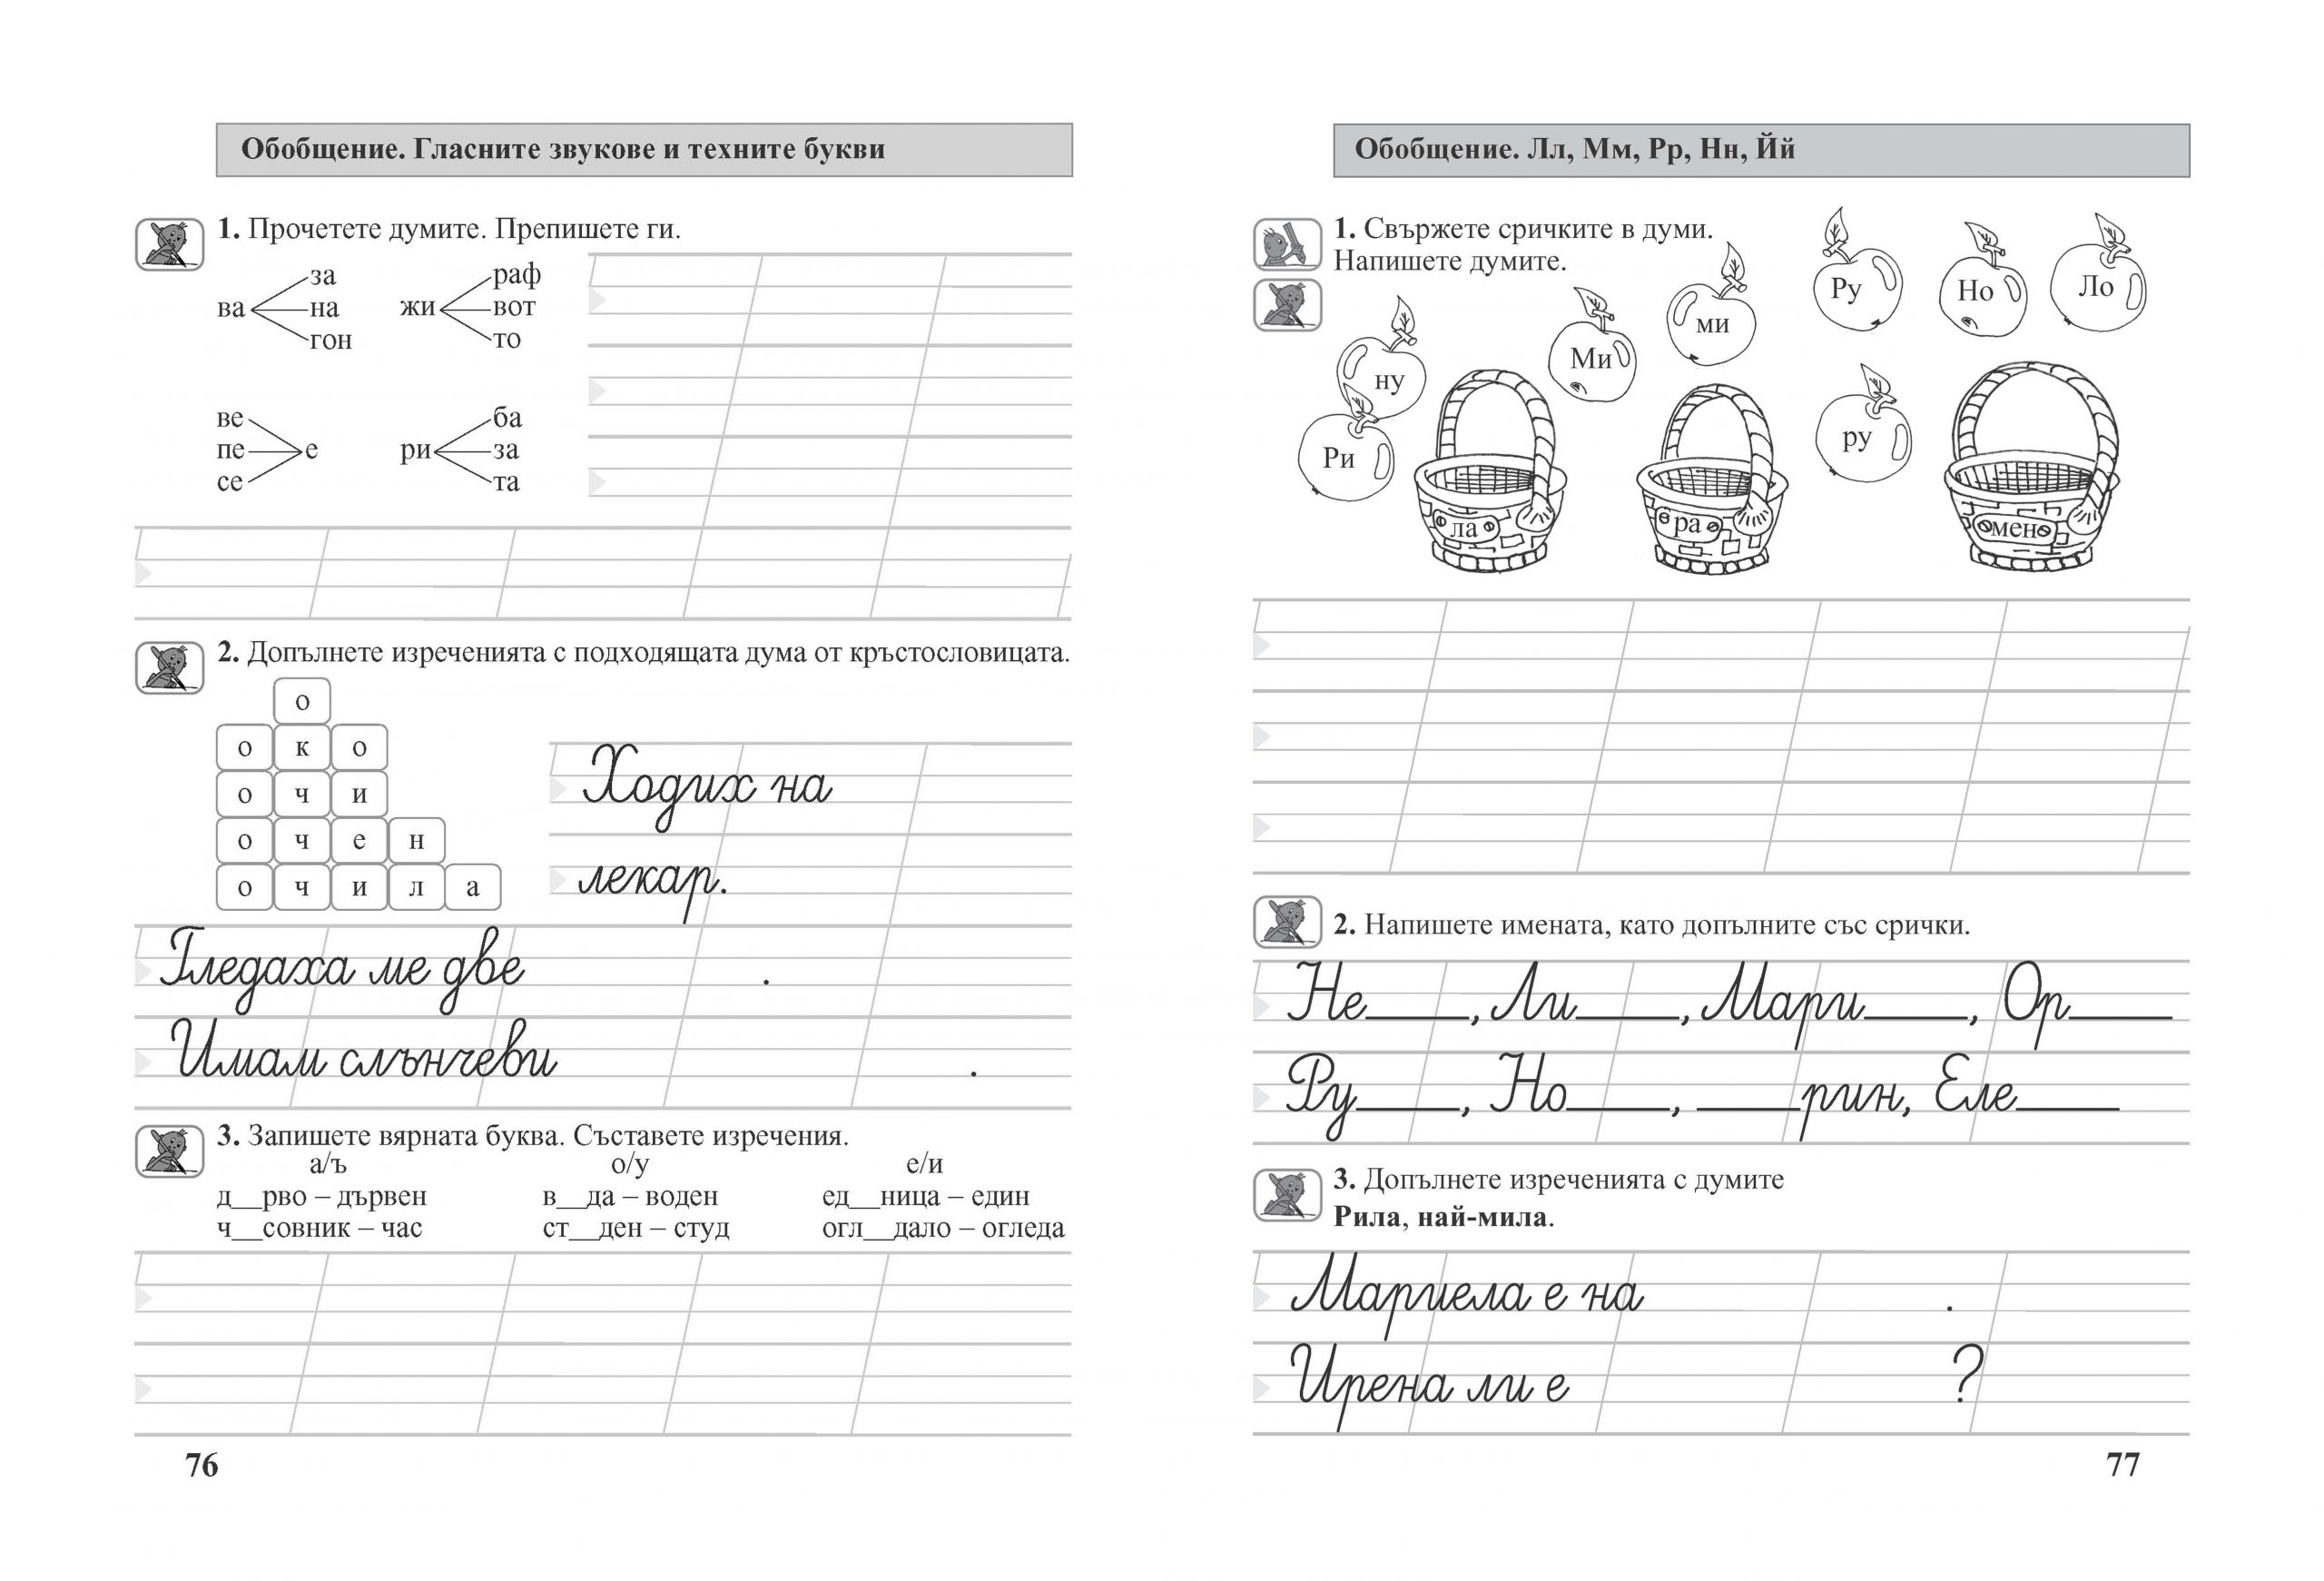 Обобщение. Гласните звукове и техните букви
1. Прочетете думите. Препишете ги.
за
ва на
гон
раф
жи вот
то
ве
пе е
се
ба
ри за
та
2. Допълнете изреченията с подходящата дума от кръстословицата.
о
о к о
о ч и
о ч е н
о ч и л а
Ходих на
лекар.
Гледаха ме две .
Имам слънчеви .
3. Запишете вярната буква. Съставете изречения.
а/ъ о/у е/и
д__рво – дървен в__да – воден ед__ница – един
ч__совник – час ст__ден – студ огл__дало – огледа
76
Обобщение. Лл, Мм, Рр, Нн, Йй
1. Свържете сричките в думи.
Напишете думите.
Ру Но Ло
ми
Ми
ну
Ри
ру
ла ра мен
2. Напишете имената, като допълните със срички.
Не____, Ли____, Мари____, Ор____
Ру____, Но____, ____рин, Еле____
3. Допълнете изреченията с думите
Рила, най-мила.
Мариела е на .
Ирена ли е ?
77